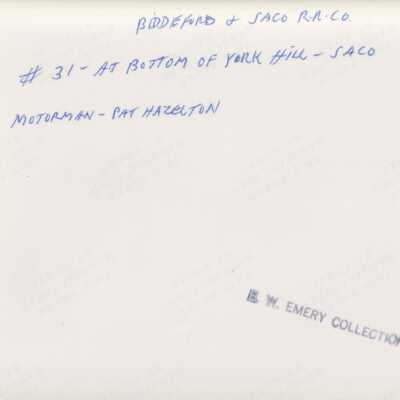 BIDDEFORD & SACO R.R. CO.
# 31 - AT BOTTOM OF YORK HILL - SACO
MOTORMAN - PAT HAZELTON
E. W. EMERY COLLECTION